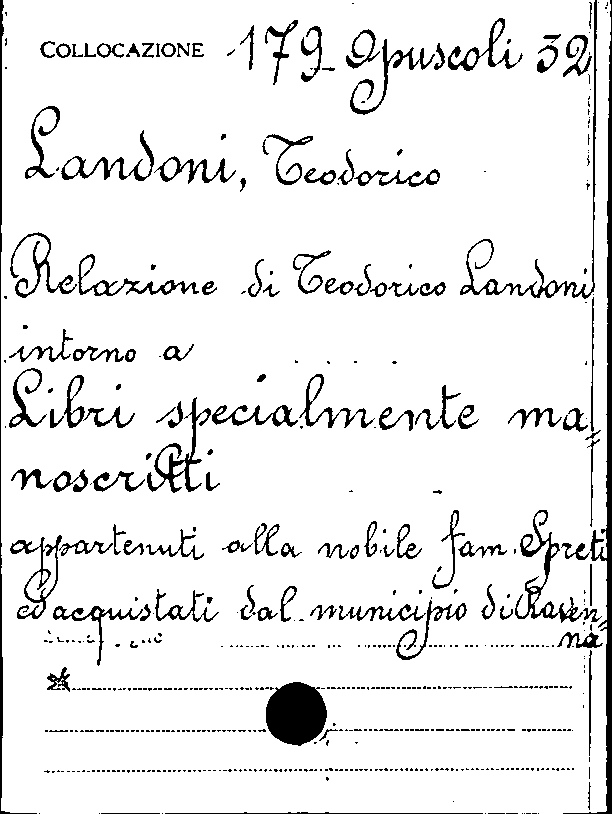 COLLOCAZIONE 179 Opuscoli 32
Landoni, Teodorico
Relazione di Teodorico Landoni
intorno a
Libri specialmente ma
noscritti
appartenuti alla nobile fam. Spreti
ed acquistati dal municipio di Raven=
na